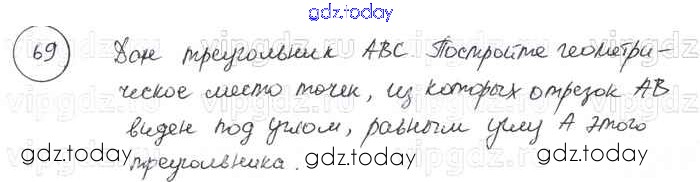 gdz.today
69 Дан треугольник ABC. Постройте геометри-
ческое место точек, из которых отрезок AB
виден под углом, равным углу A этого
треугольника.
gdz.today gdz.today